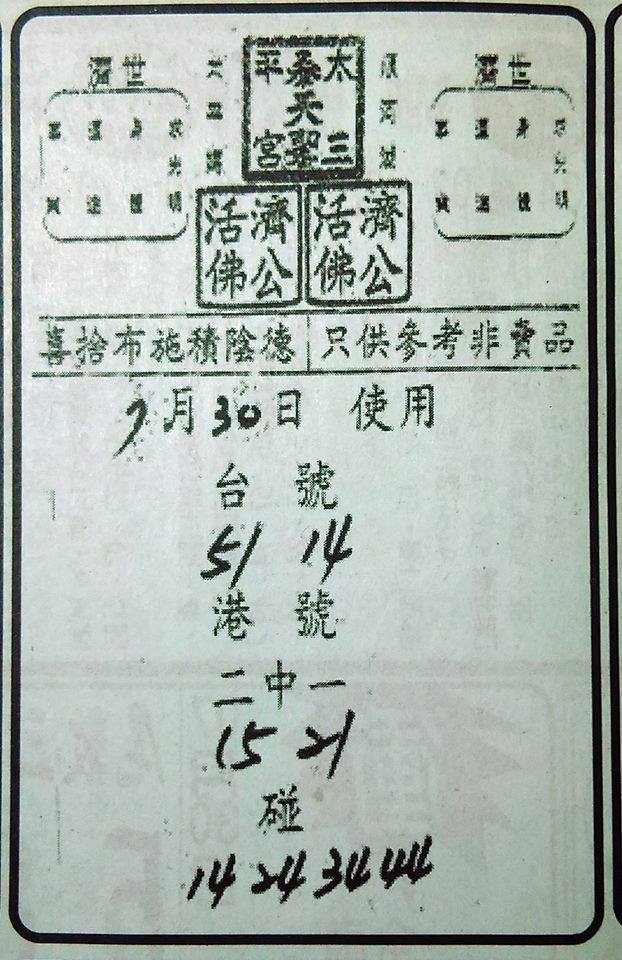 濟世
濟世
太平
桑天
三聖宮
濟公活佛
濟公活佛
喜捨布施積陰德 只供參考非賣品
7月30日 使用
台號
51 14
港號
二中一
15 21
碰
14 24 34 44